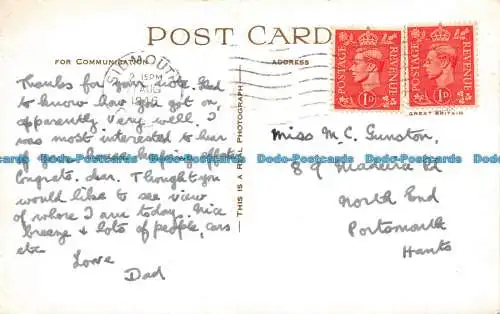 POST CARD
FOR COMMUNICATION
ADDRESS
SIDMOUTH
2 15PM
AUG
POSTAGE REVENUE
1D
POSTAGE REVENUE
1D
GREAT BRITAIN
Thanks for your note. Glad
to know how you got on,
apparently very well. I
was most interested to hear
of your housekeeping efforts
Congrats. dear. Thought you
would like to see view
of where I am today. Nice
breeze & lots of people, cars
etc.
Love
Dad
THIS IS A REAL PHOTOGRAPH
Miss M.C. Gunston,
89 Madeira Rd
North End
Portsmouth
Hants
Dodo-Postcards Dodo-Postcards Dodo-Postcards Dodo-Postcards Dodo-Postcards